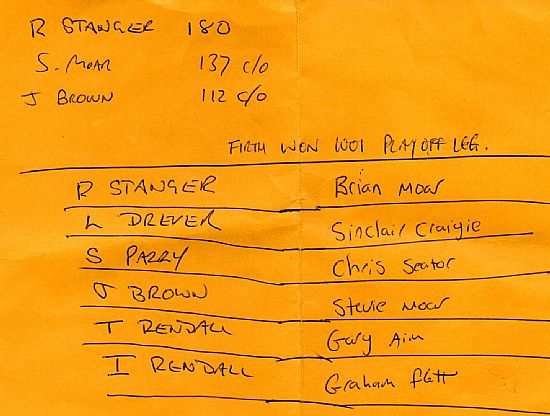 R STANGER 180
S. MOAR 137 c/o
J BROWN 112 c/o
FIRTH WON 1001 PLAYOFF LEG.
R STANGER Brian Moar
L DREVER Sinclair Craigie
S PARRY Chris Seator
J BROWN Stevie Moar
T RENDALL Gary Aim
I RENDALL Graham flett